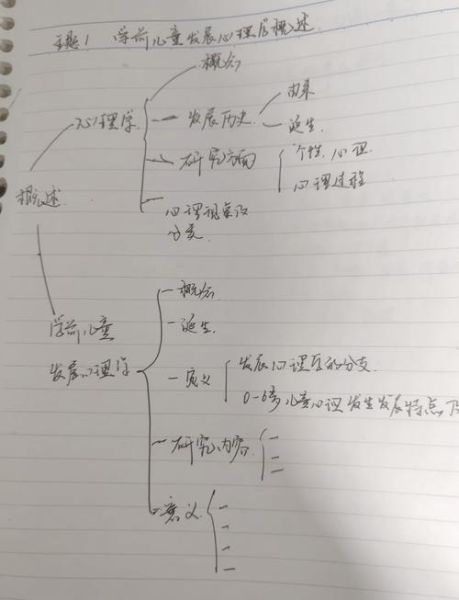 主题1 学前儿童发展心理学概述
概念
心理学
发展历史
由来
诞生
研究方面
个性心理
心理过程
心理现象及
分类
概述
学前儿童
发展心理学
概念
诞生
定义
发展心理学的分支
0-6岁儿童心理发生发展特点
研究内容
意义